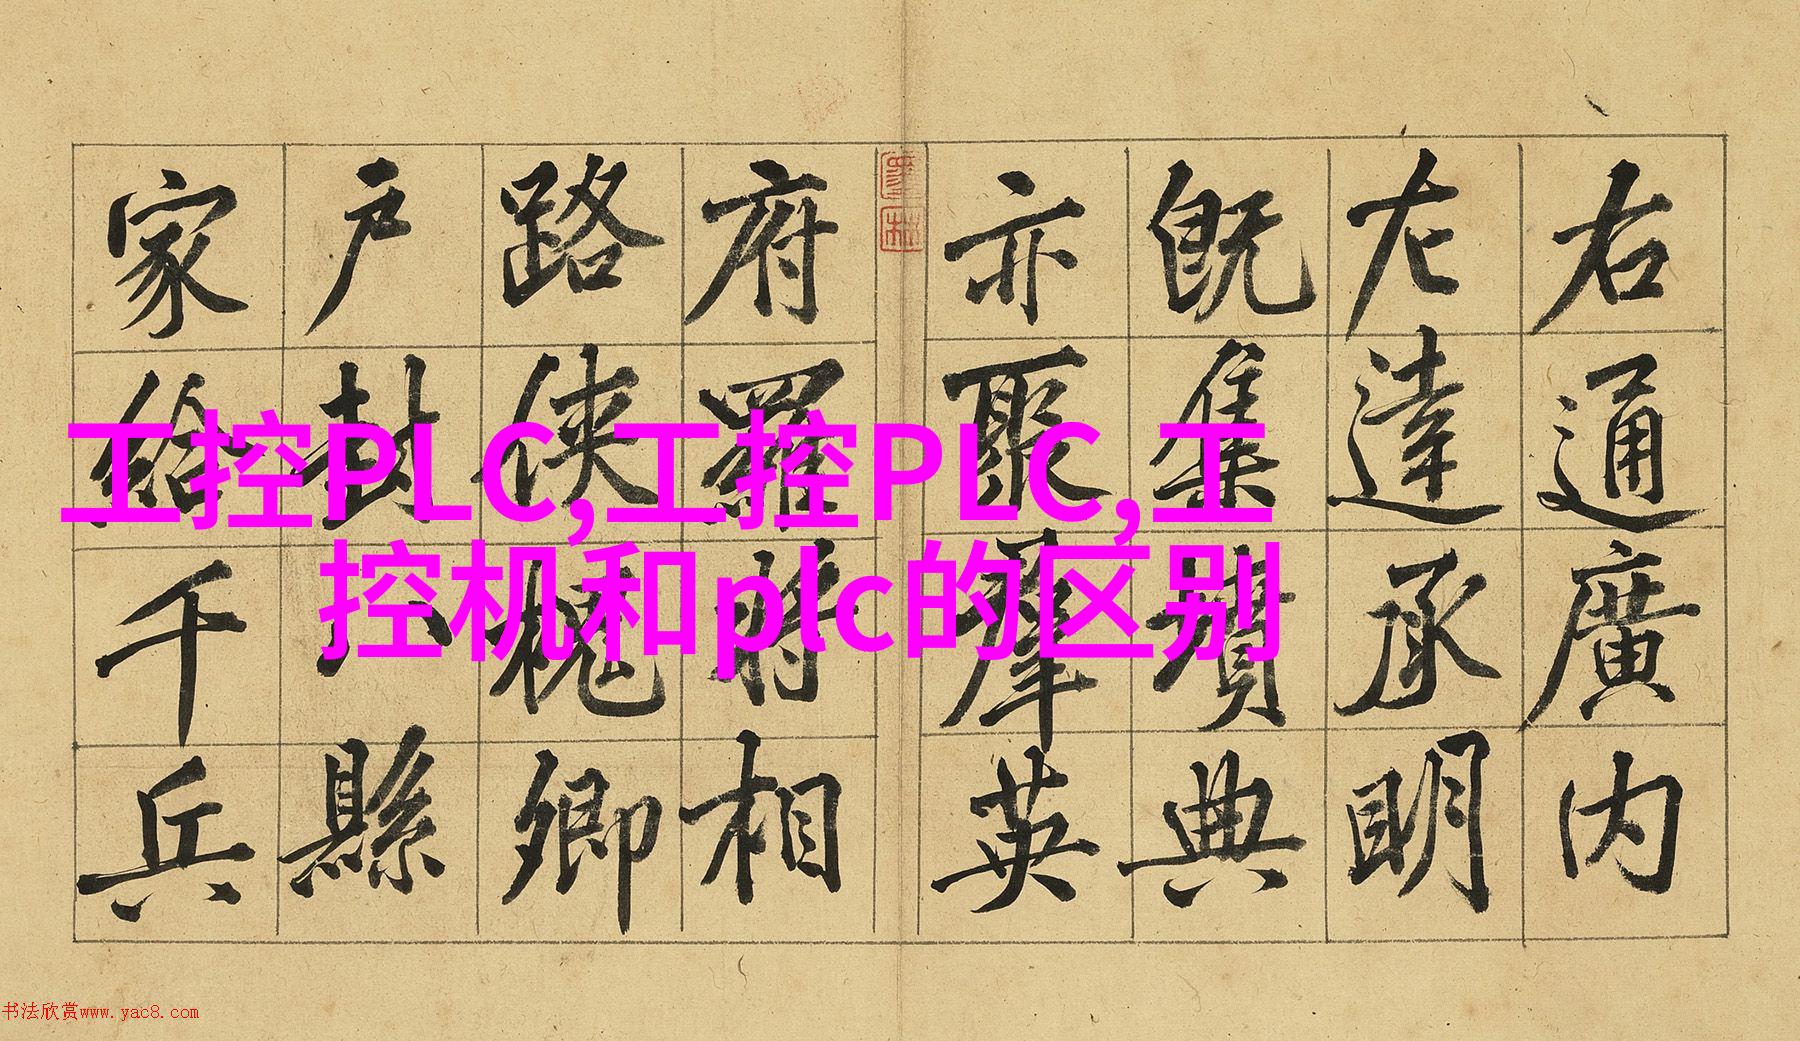 右通廣内
左達承明
既集墳典
亦聚羣英
府羅將相
路侠槐卿
户封八縣
家給千兵
工控PLC,工控PLC,工
控机和plc的区别
书法欣赏www.yac8.com